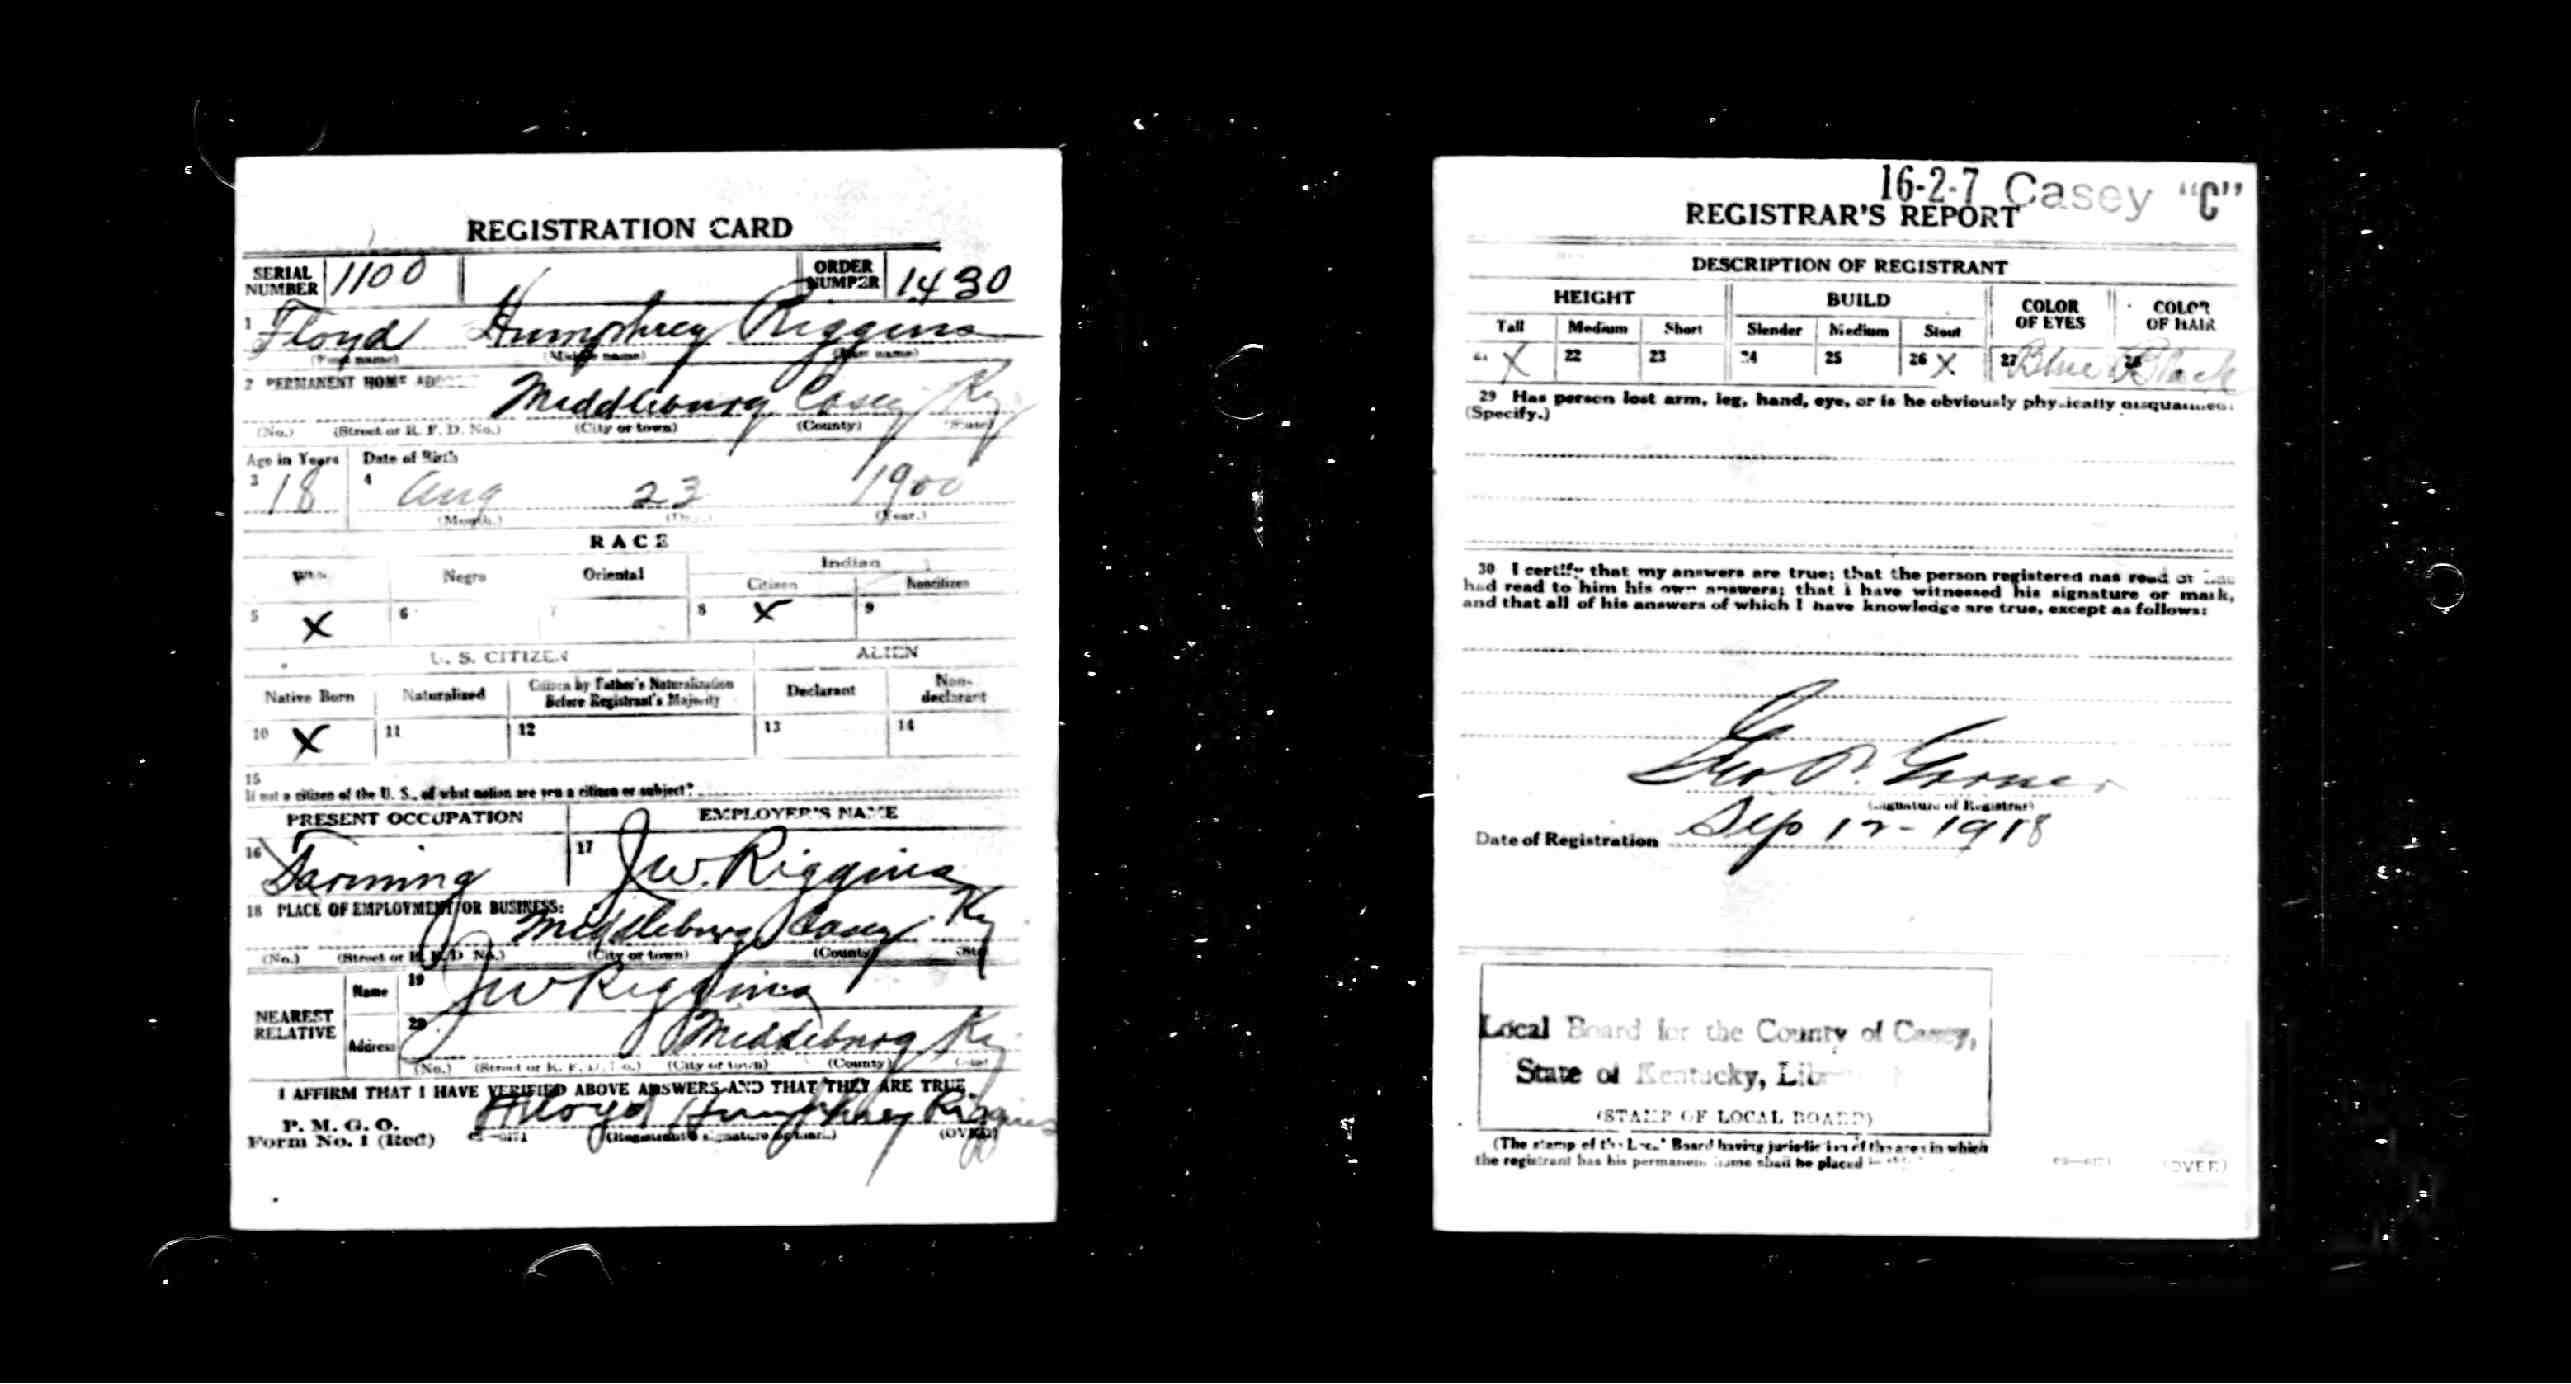 REGISTRATION CARD
SERIAL NUMBER 1100 ORDER NUMBER 1430
1 Floyd Humphrey Riggins
(First name) (Middle name) (Last name)
2 PERMANENT HOME ADDRESS
Middleburg Casey Ky
(No.) (Street or R. F. D. No.) (City or town) (County) (State)
Age in Years Date of Birth
3 18 4 Aug 23 1900
(Month.) (Day.) (Year.)
RACE
White Negro Oriental Indian
Citizen Noncitizen
5 X 6 7 8 X 9
U. S. CITIZEN ALIEN
Native Born Naturalized Citizen by Father's Naturalization Before Registrant's Majority Declarant Non-declarant
10 X 11 12 13 14
15
If not a citizen of the U. S., of what nation are you a citizen or subject?
PRESENT OCCUPATION EMPLOYER'S NAME
16 Farming 17 J.W. Riggins
18 PLACE OF EMPLOYMENT OR BUSINESS:
Middleburg Casey Ky
(No.) (Street or R. F. D. No.) (City or town) (County) (State)
NEAREST RELATIVE Name 19 J W Riggins
Address 20 Middleburg Ky
(No.) (Street or R. F. D. No.) (City or town) (County) (State)
I AFFIRM THAT I HAVE VERIFIED ABOVE ANSWERS AND THAT THEY ARE TRUE
P. M. G. O.
Form No. 1 (Red) Floyd Humphrey Riggins
(Registrant's signature or mark.) (OVER)
16-2-7 Casey "C"
REGISTRAR'S REPORT
DESCRIPTION OF REGISTRANT
HEIGHT BUILD COLOR OF EYES COLOR OF HAIR
Tall Medium Short Slender Medium Stout
21 X 22 23 24 25 26 X 27 Blue 28 Black
29 Has person lost arm, leg, hand, eye, or is he obviously physically disqualified?
(Specify.)
30 I certify that my answers are true; that the person registered has read or has
had read to him his own answers; that I have witnessed his signature or mark,
and that all of his answers of which I have knowledge are true, except as follows:
Geo
(Signature of Registrar)
Date of Registration Sep 12-1918
Local Board for the County of Casey,
State of Kentucky,
(STAMP OF LOCAL BOARD)
(The stamp of the Local Board having jurisdiction of the area in which
the registrant has his permanent home shall be placed in this
(OVER)